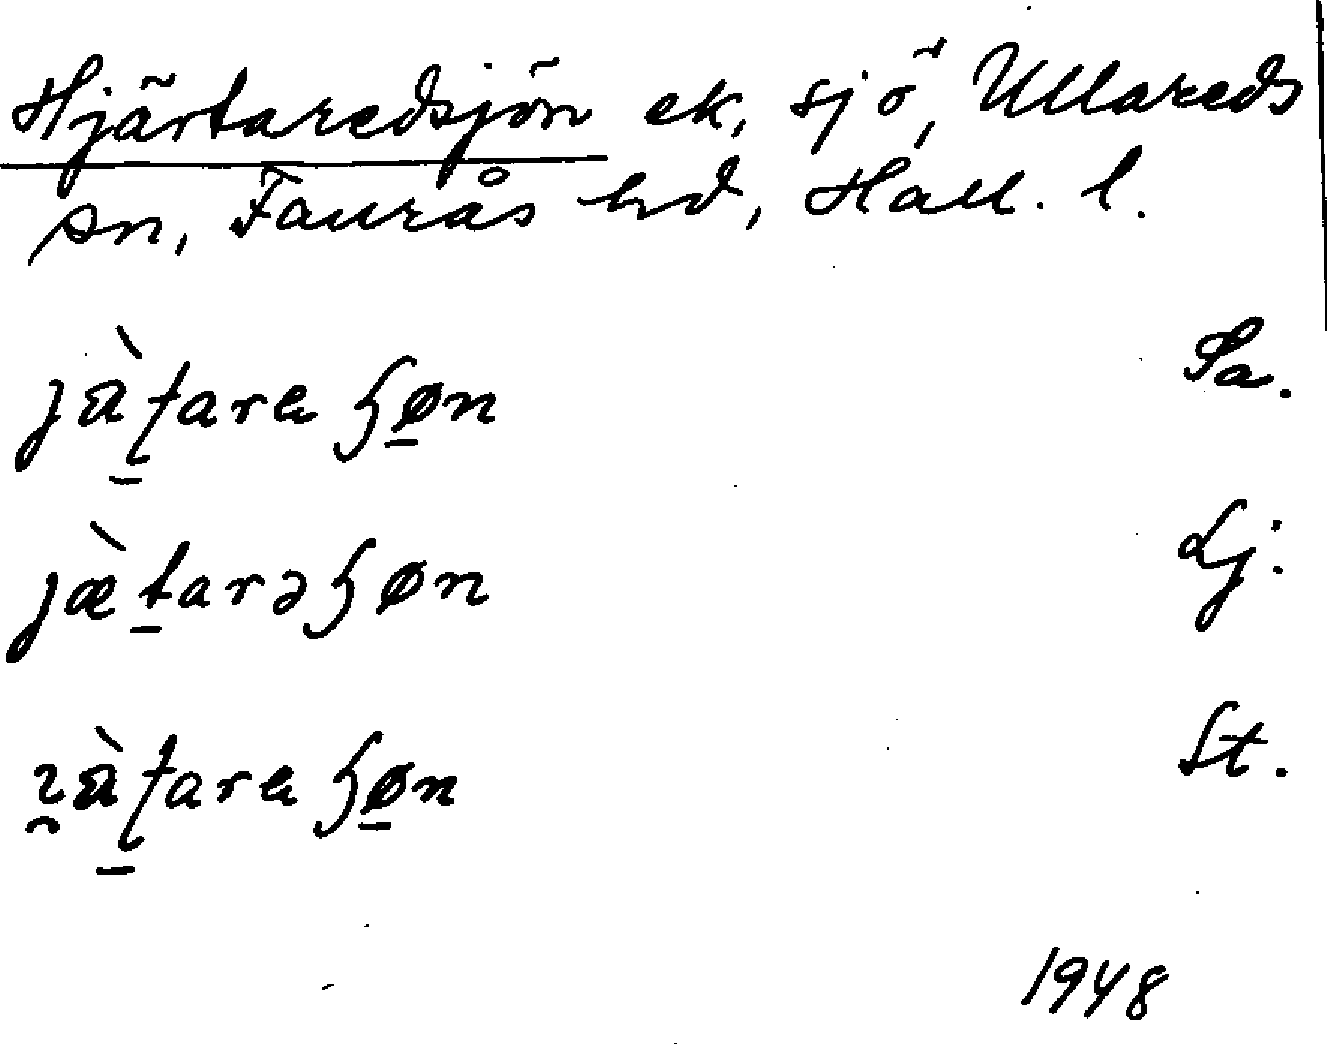 Hjärtaredsjön ek, sjö, Ullareds
sn, Faurås hd, Hall. l.
jæ̀ʈareɧøn Sa.
jæ̀tarəɧøn Lj.
ɪ̯æ̀ʈareɧøn St.
1948